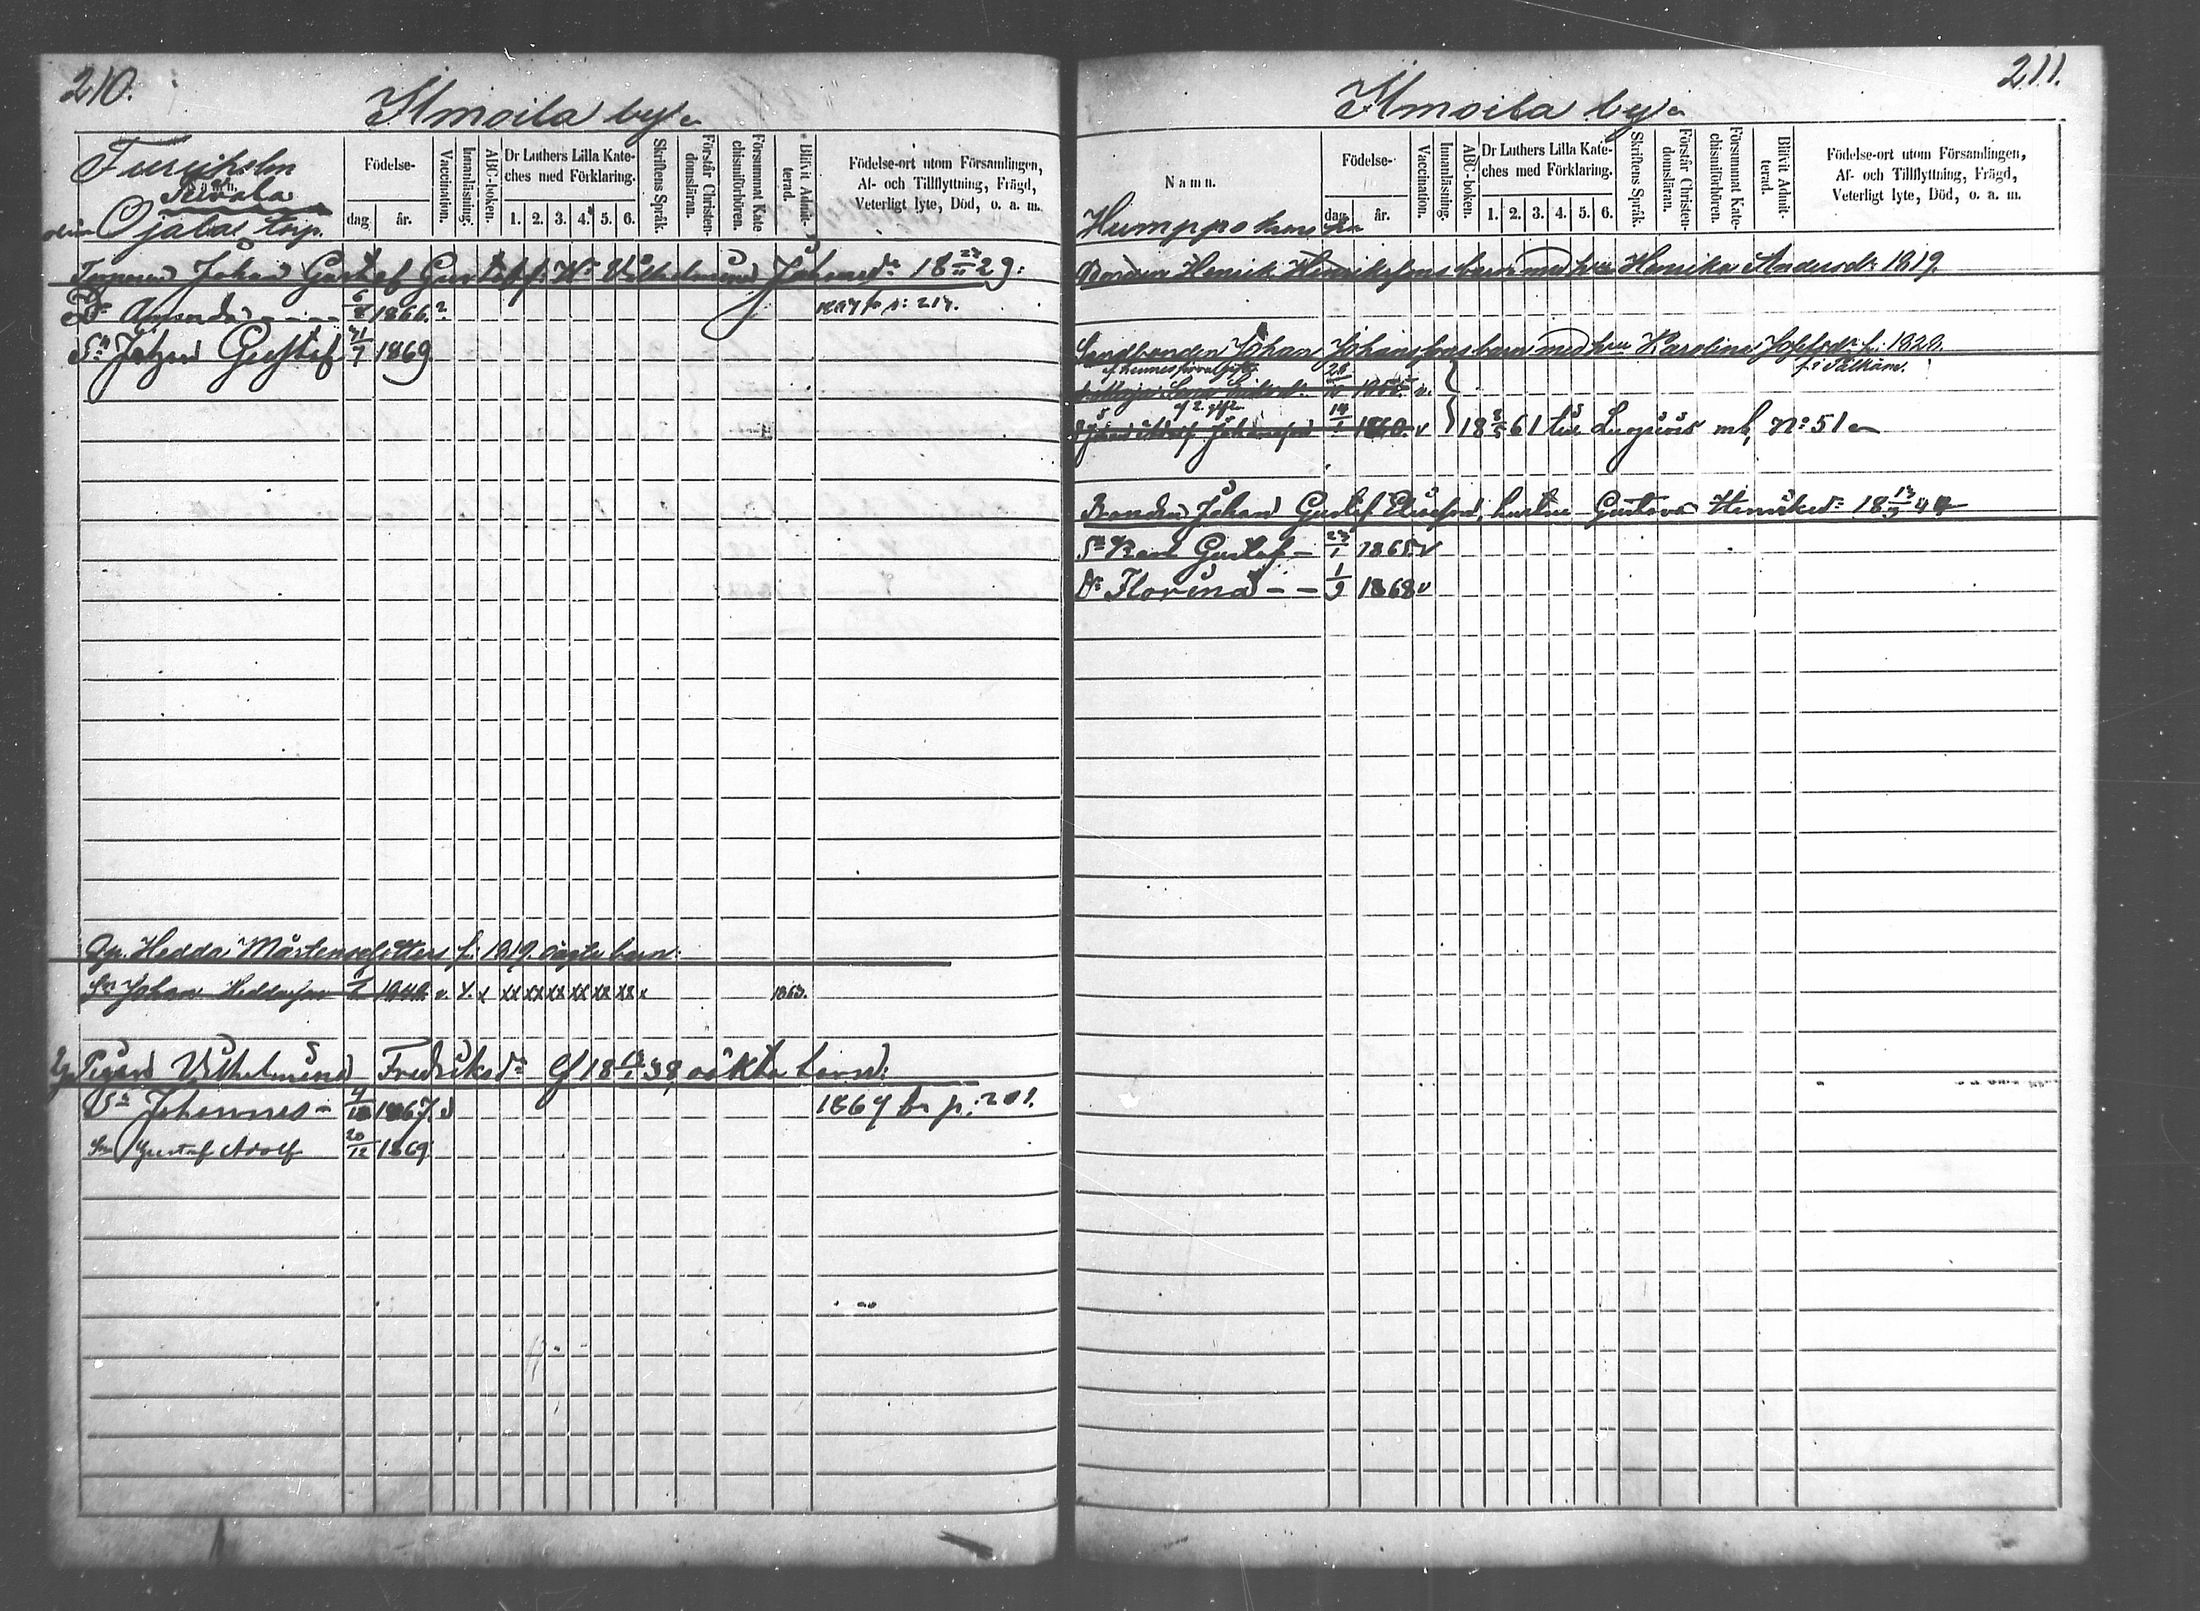 210.
Ilmoila by
Furuholm
Namn.
Rivala
Ojala torp.
Födelse-
dag.
år.
Vaccination.
Innanläsning.
ABC-boken.
Dr Luthers Lilla Kate-
ches med Förklaring.
1. 2. 3. 4. 5. 6.
Skriftens Språk.
Förstår Christen-
domsläran.
Försummat Kate
chismiförhören.
Blifvit Admit-
terad.
Födelse-ort utom Församlingen,
Af- och Tillflyttning, Frägd,
Veterligt lyte, Död, o. a. m.
Johan Gustaf Gustafs: H:u Vilhelmina Johansd:r 18 29:
D:r Amanda - - - 6/8 1866.
S:n Johan Gustaf 21/7 1869
Hedda Mårtensdotters f: 1819 oägta barn:
Sn Johan Heddason 1840 v. x. x xx xx xx xx xx xx x 1863.
Pigan Vilhelmina Fredriksd:r f 18 38, oäkta barn:
S:n Johannes - 1867. v 1869 fr p: 201.
Sn Gustaf Adolf 20/12 1869
211.
Ilmoila by
Namn.
Födelse-
dag.
år.
Vaccination.
Innanläsning.
ABC-boken.
Dr Luthers Lilla Kate-
ches med Förklaring.
1. 2. 3. 4. 5. 6.
Skriftens Språk.
Förstår Christen-
domsläran.
Försummat Kate-
chismiförhören.
Blifvit Admit-
terad.
Födelse-ort utom Församlingen,
Af- och Tillflyttning, Frägd,
Veterligt lyte, Död, o. a. m.
Bonden Henrik Henriksons barn med hu Henrika Andersdr 1819.
Johan Johanssons barn med hu Karolina Josefsdr f: 1828.
f: i Pälkäne.
d Maja Lena 1855 v.
af 2 gifte
Johan Adolf Johansson 14/1 1860. v 18 61 till mb, N: 51
Bonden Johan Gustaf Eliasson, hustru Gustava Henriksd:r 18 44
S:n Karl Gustaf - 23/1 1865 v
D:r Florina - - 1/9 1868 v